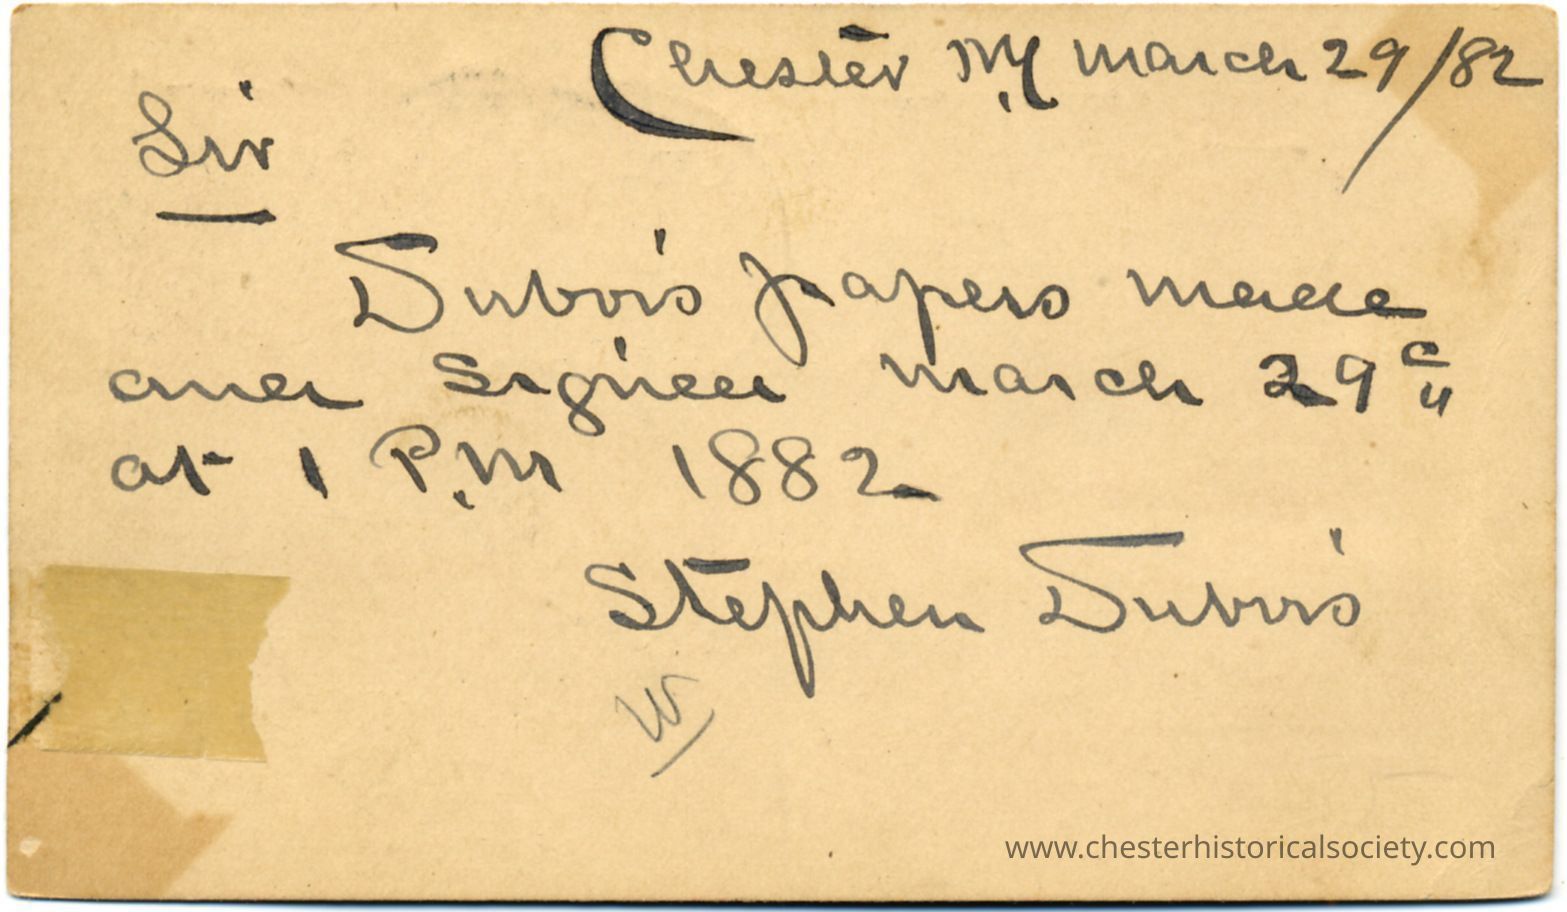 Chester N.Y March 29/82
Sir
Dubois papers made
and Signed March 29th
at 1 P.M 1882
Stephen Dubois
W
www.chesterhistoricalsociety.com